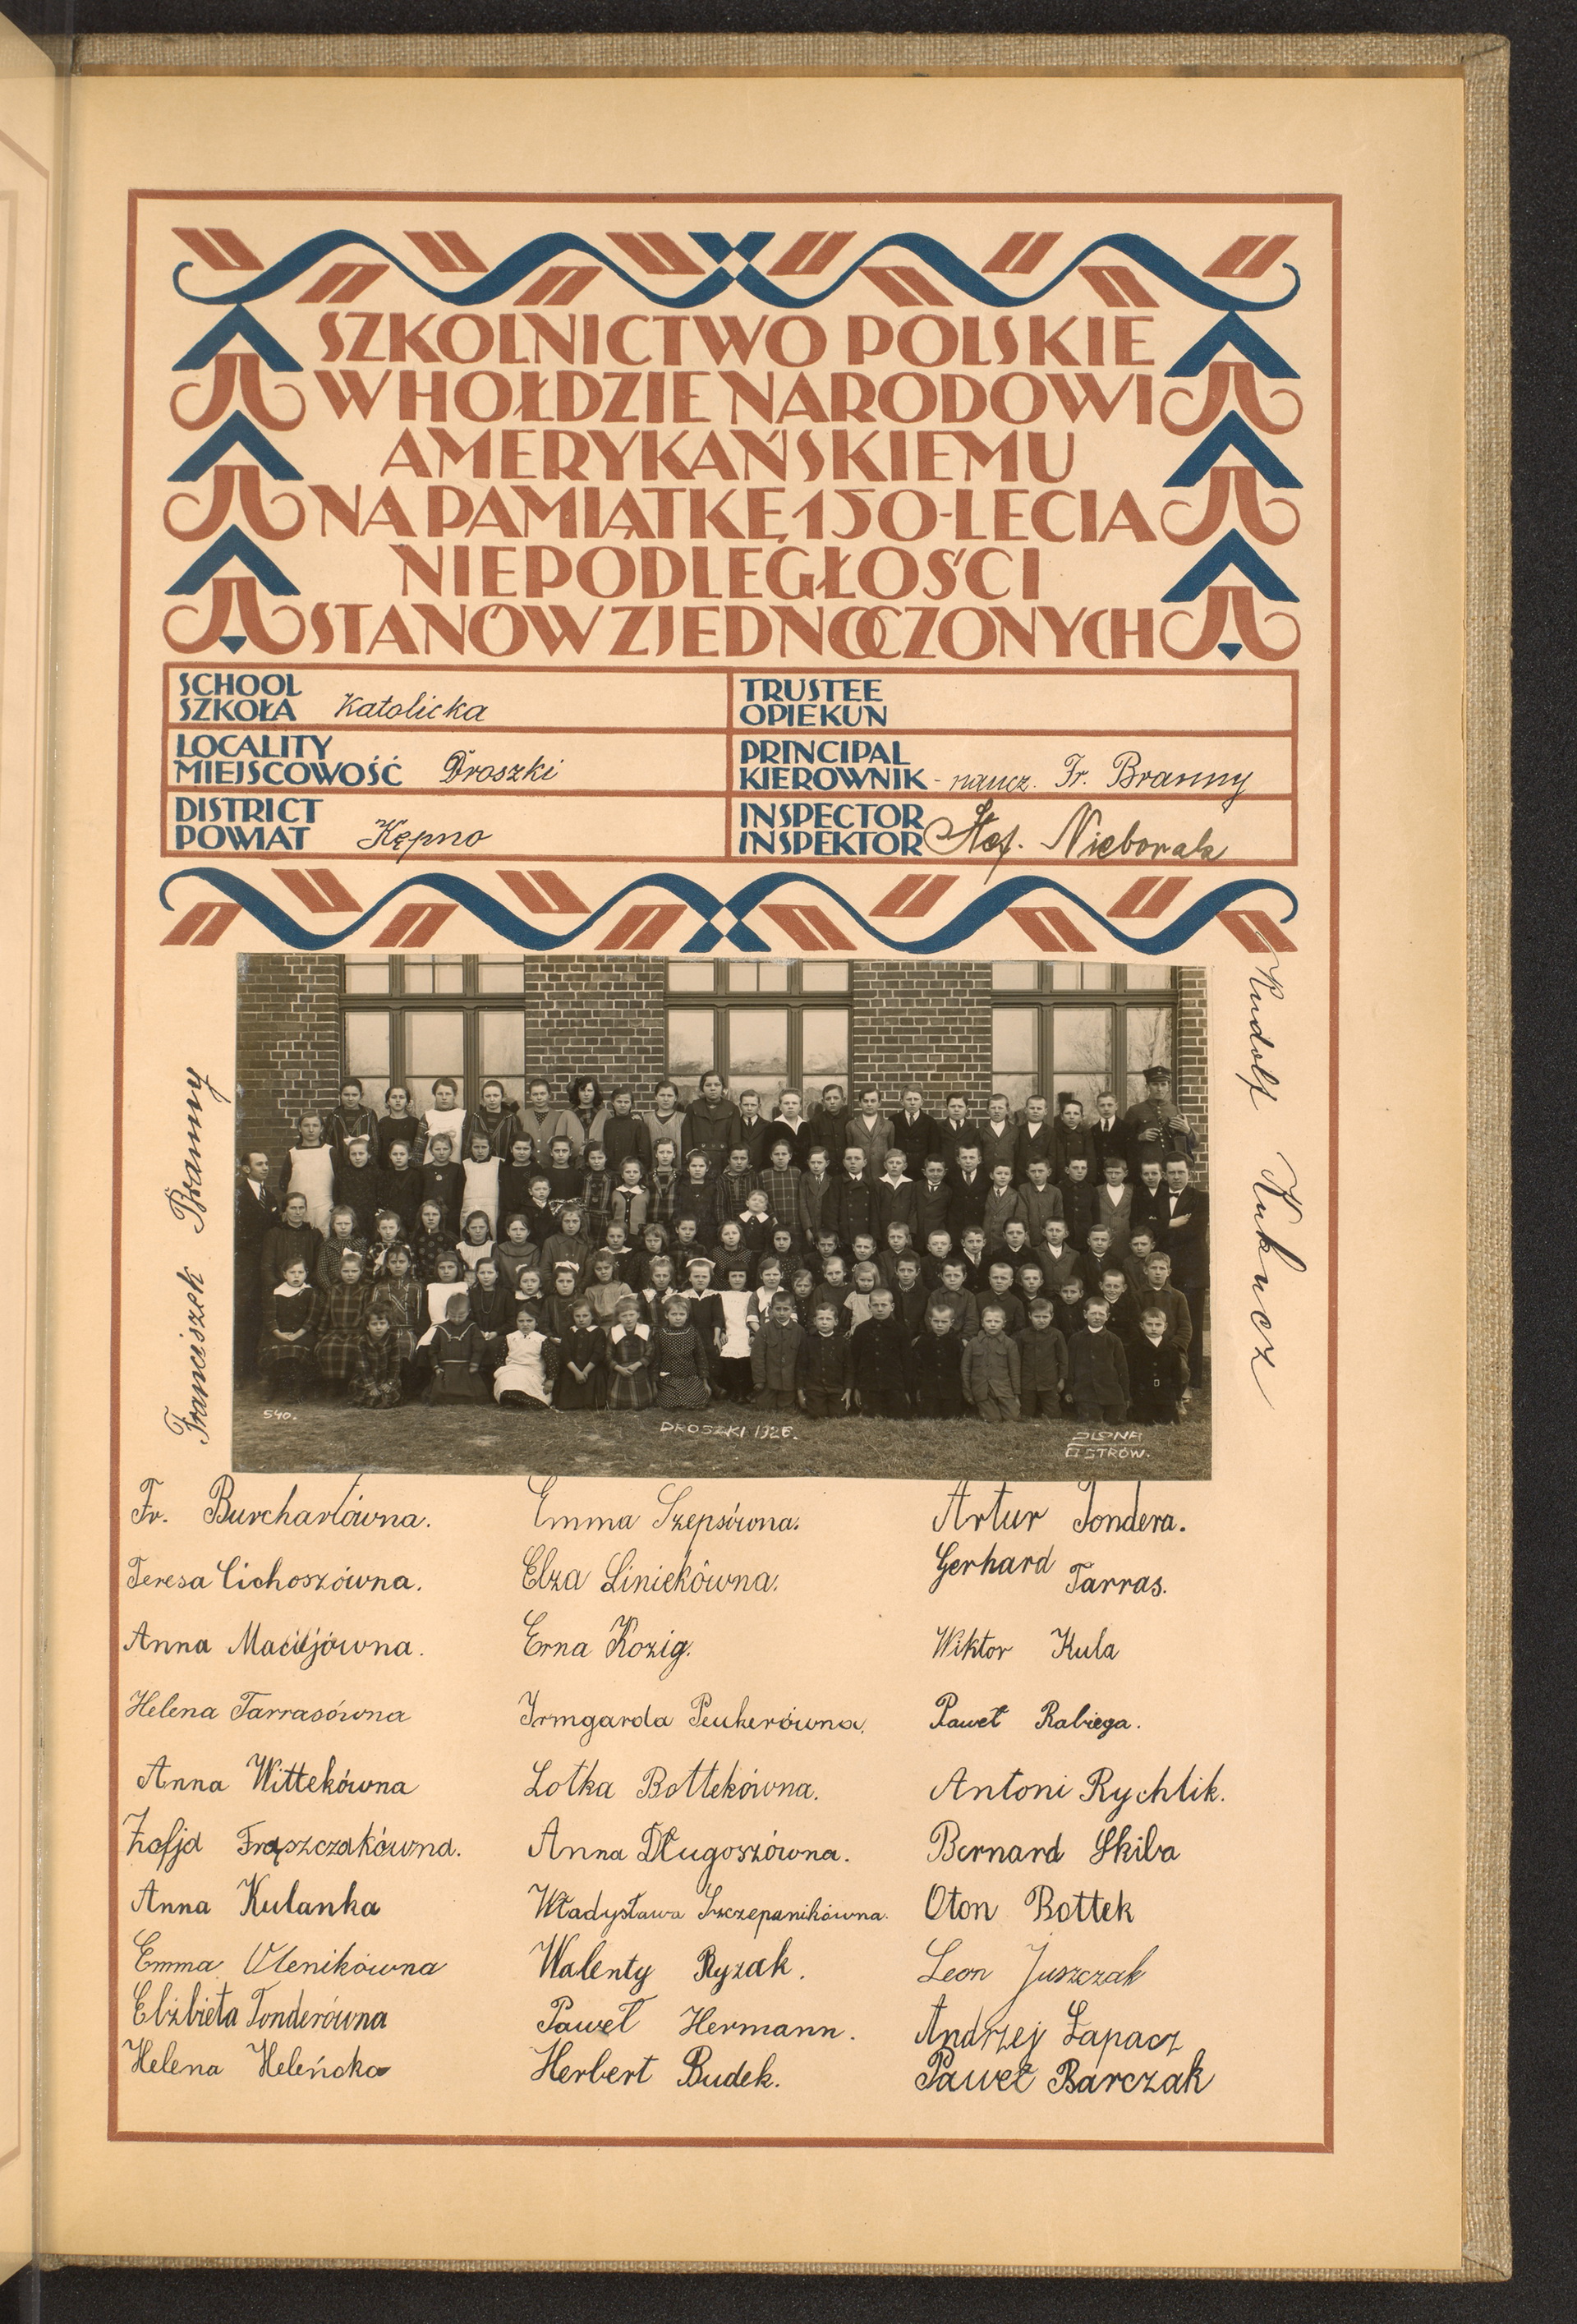 SZKOLNICTWO POLSKIE
W HOŁDZIE NARODOWI
AMERYKAŃSKIEMU
NA PAMIĄTKĘ 150-LECIA
NIEPODLEGŁOŚCI
STANÓW ZJEDNOCZONYCH
SCHOOL
SZKOŁA Katolicka
TRUSTEE
OPIEKUN
LOCALITY
MIEJSCOWOŚĆ Droszki
PRINCIPAL
KIEROWNIK - naucz. Fr. Branny
DISTRICT
POWIAT Kępno
INSPECTOR
INSPEKTOR Stef. Nieborak
Franciszek Branny
Rudolf Kukucz
540.
DROSZKI 1926.
ILONA
OSTRÓW.
Fr. Burchartówna.
Teresa Cichoszówna.
Anna Maciejówna.
Helena Tarrasówna
Anna Wittekówna
Zofja Frąszczakówna.
Anna Kulanka
Emma Olenikówna
Elżbieta Tonderówna
Helena Heleńcka
Emma Szepsówna.
Elza Liniekówna.
Erna Kozig.
Irmgarda Peukerówna.
Lotka Bottekówna.
Anna Długoszówna.
Władysława Szczepanikówna.
Walenty Ryzak.
Paweł Hermann.
Herbert Budek.
Artur Tondera.
Gerhard Tarras.
Wiktor Kula
Paweł Rabiega.
Antoni Rychlik.
Bernard Skiba
Oton Bottek
Leon Juszczak
Andrzej Łapacz
Paweł Barczak